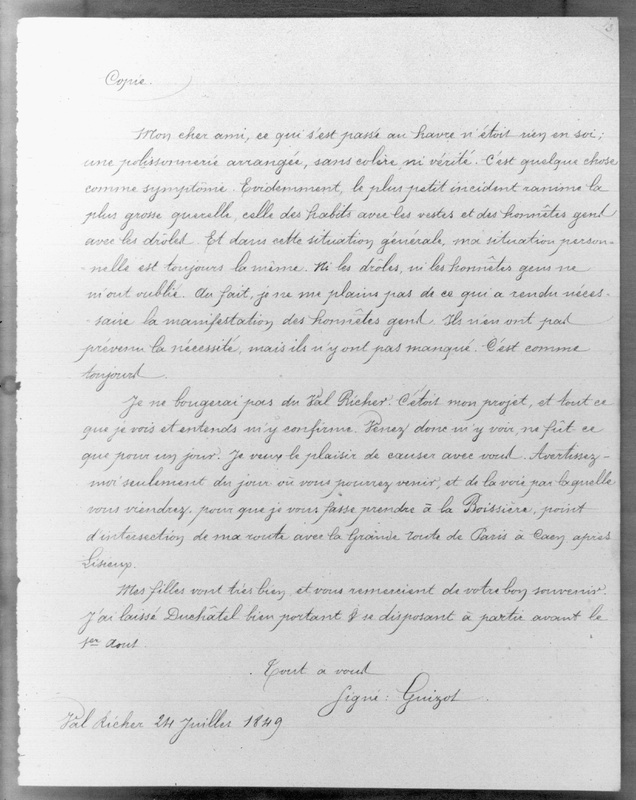 3
Copie.
Mon cher ami, ce qui s'est passé au havre n'étoit rien en soi;
une polissonnerie arrangée, sans colère, ni vérité. C'est quelque chose
comme symptôme. Evidemment, le plus petit incident ranime la
plus grosse querelle, celle des habits avec les vestes et des honnêtes gens
avec les drôles. Et dans cette situation générale, ma situation person-
-nelle est toujours la même. Ni les drôles, ni les honnêtes gens ne
m'ont oublié. Au fait, je ne me plains pas de ce qui a rendu néces-
-saire la manifestation des honnêtes gens. Ils n'en ont pas
prévenu la nécessité, mais ils n'y ont pas manqué. C'est comme
toujours.
Je ne bougerai pas du Val Richer. C'étois mon projet, et tout ce
que je vois et entends m'y confirme. Venez donc m'y voir, ne fût ce
que pour un jour. Je veux le plaisir de causer avec vous. Avertissez-
-moi seulement du jour où vous pourrez venir, et de la voie par laquelle
vous viendrez, pour que je vous fasse prendre à la Boissière, point
d'intersection de ma route avec la Grande route de Paris à Caen après
Lisieux.
Mes filles vont très bien, et vous remercient de votre bon souvenir.
J'ai laissé Duchâtel bien portant & se disposant à partir avant le
1er Aout.
Tout a vous
Signé: Guizot.
Val Richer 24 Juillet 1849